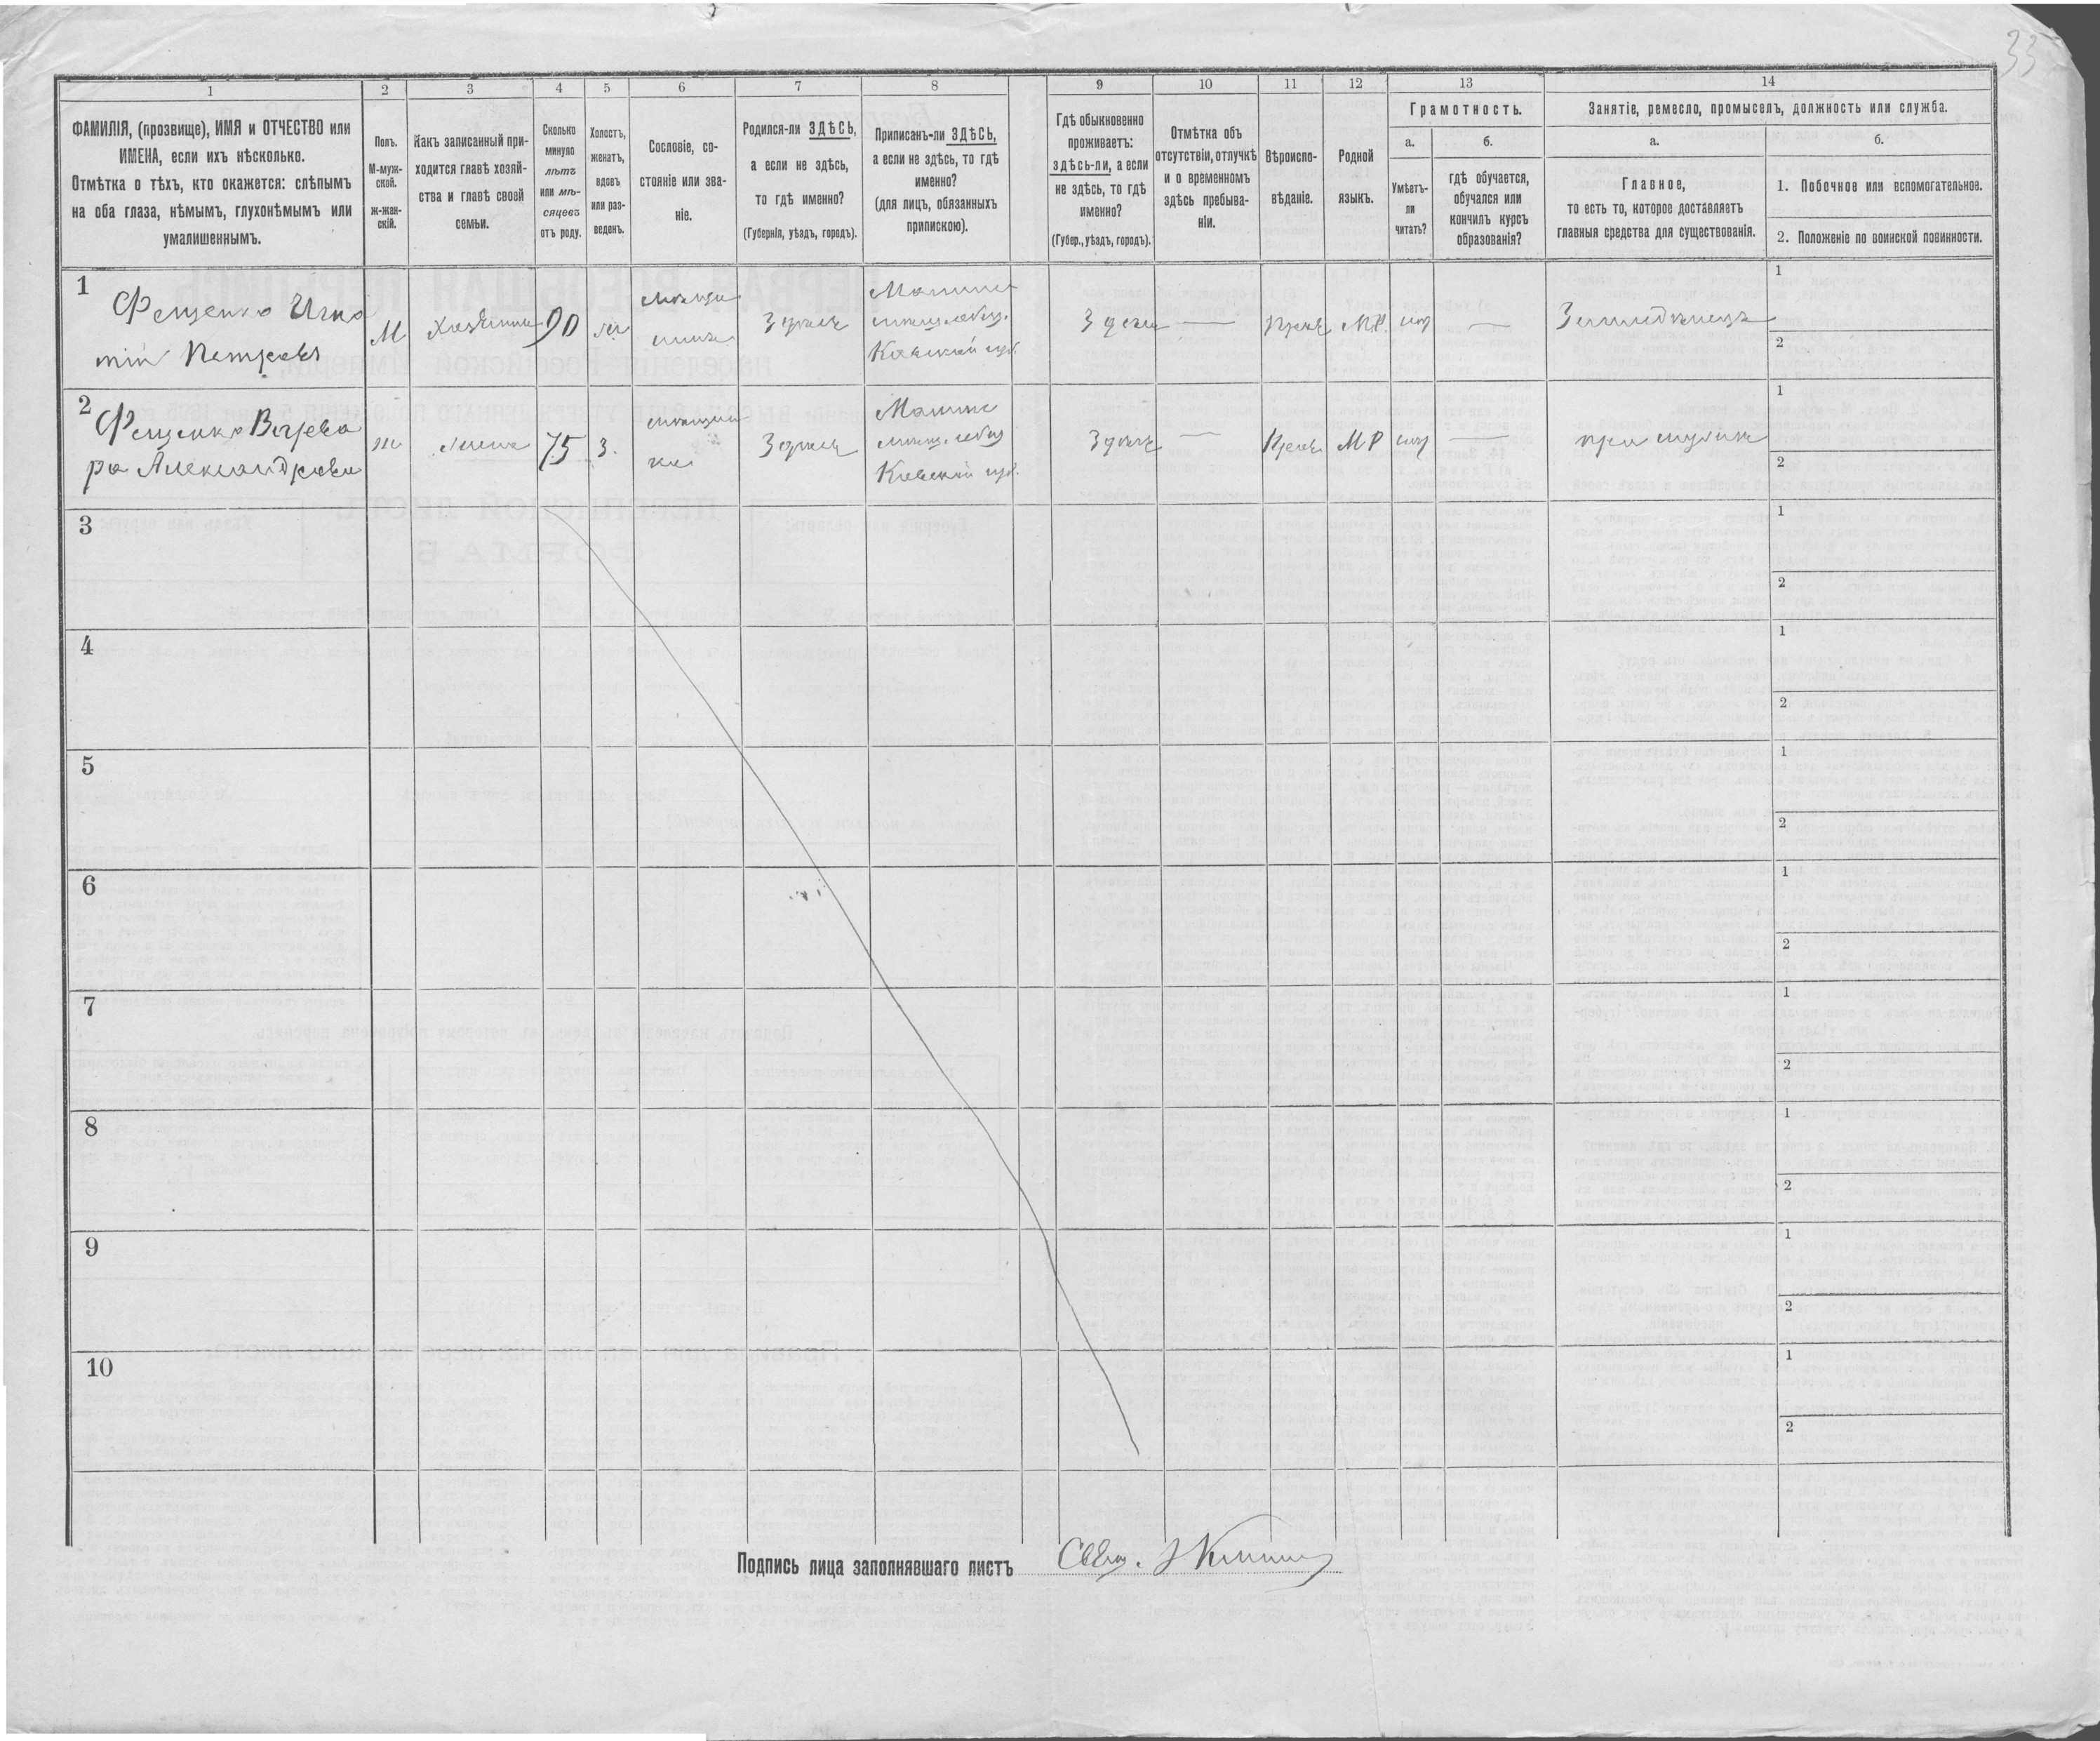 33
1
2
3
4
5
6
7
8
9
10
11
12
13
14
ФАМИЛІЯ, (прозвище), ИМЯ и ОТЧЕСТВО или
ИМЕНА, если ихъ нѣсколько.
Отмѣтка о тѣхъ, кто окажется: слѣпымъ
на оба глаза, нѣмымъ, глухонѣмымъ или
умалишеннымъ.
Полъ.
М-муж-
ской.
ж-жен-
скій.
Какъ записанный при-
ходится главѣ хозяй-
ства и главѣ своей
семьи.
Сколько
минуло
лѣтъ
или мѣ-
сяцевъ
отъ роду.
Холостъ,
женатъ,
вдовъ
или раз-
веденъ.
Сословіе, со-
стояніе или зва-
ніе.
Родился-ли ЗДѢСЬ,
а если не здѣсь,
то гдѣ именно?
(Губернія, уѣздъ, городъ).
Приписанъ-ли ЗДѢСЬ,
а если не здѣсь, то гдѣ
именно?
(для лицъ, обязанныхъ
припискою).
Гдѣ обыкновенно
проживаетъ:
здѣсь-ли, а если
не здѣсь, то гдѣ
именно?
(Губер., уѣздъ, городъ).
Отмѣтка объ
отсутствіи, отлучкѣ
и о временномъ
здѣсь пребыва-
ніи.
Вѣроиспо-
вѣданіе.
Родной
языкъ.
Грамотность.
а.
Умѣетъ-
ли
читать?
б.
гдѣ обучается,
обучался или
кончилъ курсъ
образованія?
Занятіе, ремесло, промыселъ, должность или служба.
а.
Главное,
то есть то, которое доставляетъ
главныя средства для существованія.
б.
1. Побочное или вспомогательное.
2. Положеніе по воинской повинности.
1
Фещенко Игна
тій Петровъ
М
Хозяинъ
90
мѣща
нинъ
Здѣсь
Кіевской губ.
Здѣсь
—
Прав
МР.
—
Земледѣлецъ
1
2
2
Фещенко Варва
ра Александрова
ж
жена
75
з.
мѣщан
ка
Здѣсь
Кіевской губ.
Здѣсь
—
Прав
МР
—
при мужѣ
1
2
3
1
2
4
1
2
5
1
2
6
1
2
7
1
2
8
1
2
9
1
2
10
1
2
Подпись лица заполнявшаго листъ